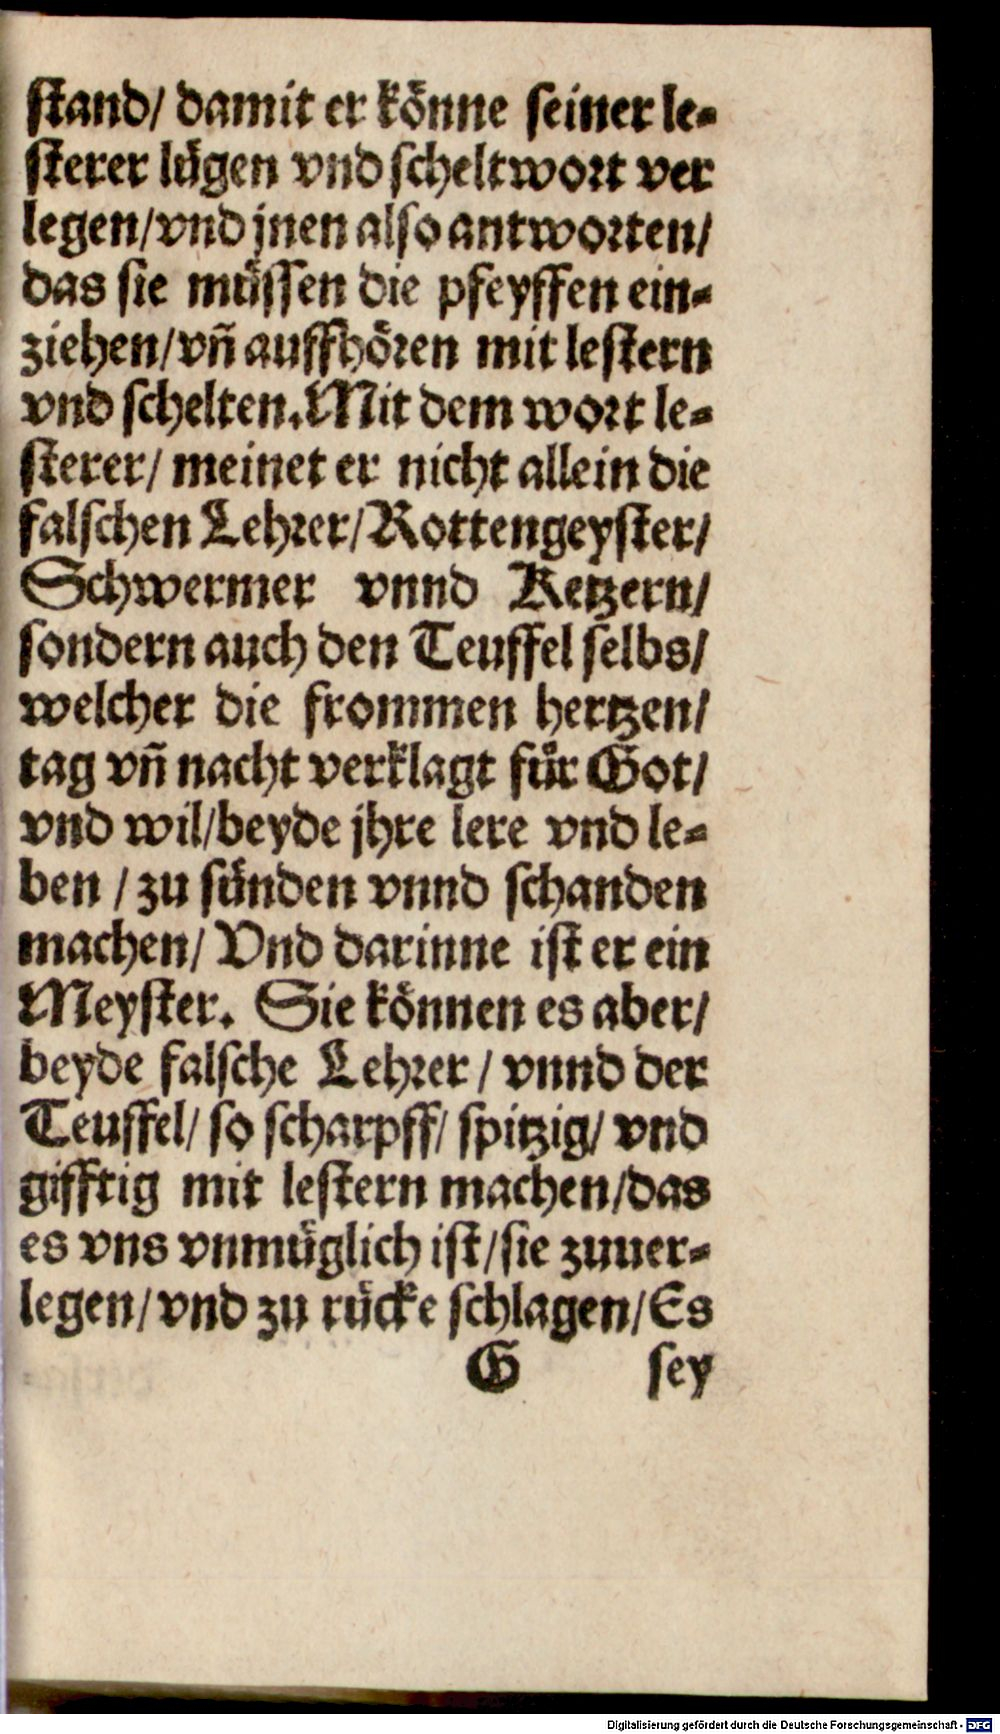 ſtand/ damit er koͤnne ſeiner le⸗
ſterer luͤgen vnd ſcheltwort ver
legen/vnd jnen alſo antworten/
das ſie muͤſſen die pfeyffen ein⸗
ziehen/vn̄ auffhoͤren mit leſtern
vnd ſchelten. Mit dem wort le⸗
ſterer/ meinet er nicht allein die
falſchen Lehrer/Rottengeyſter/
Schwermer vnnd Ketzern/
ſondern auch den Teuffel ſelbs/
welcher die frommen hertzen/
tag vn̄ nacht verklagt fuͤr Got/
vnd wil/beyde jhre lere vnd le⸗
ben / zu ſuͤnden vnnd ſchanden
machen/ Vnd darinne iſt er ein
Meyſter. Sie koͤnnen es aber/
beyde falſche Lehrer / vnnd der
Teuffel/ ſo ſcharpff/ ſpitzig/ vnd
gifftig mit leſtern machen/das
es vns vnmuͤglich iſt/ſie zuuer⸗
legen/vnd zu ruͤcke ſchlagen/Es
G ſey
Digitalisierung gefördert durch die Deutsche Forschungsgemeinschaft - DFG